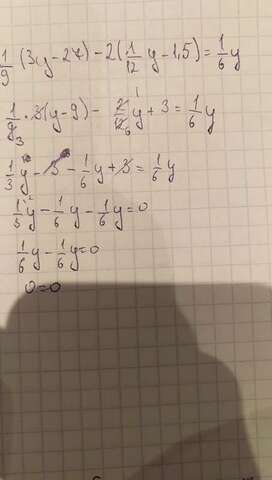 1/9 (3y-27) - 2(1/12 y - 1,5) = 1/6 y
1/9 3 · 3(y-9) - 2/12 6 1 y + 3 = 1/6 y
1/3 y - 3 - 1/6 y + 3 = 1/6 y
1/3 y - 1/6 y - 1/6 y = 0
1/6 y - 1/6 y = 0
0 = 0